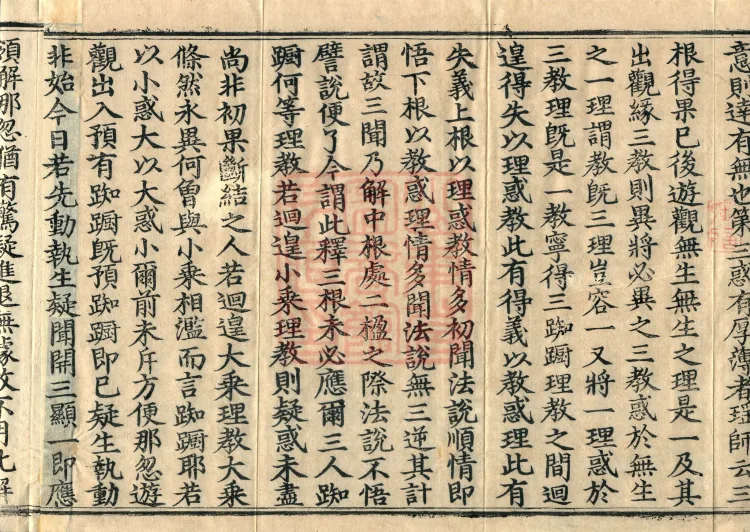 意則達有無也第二惑有厚薄者理師云三
根得果已後遊觀無生無生之理是一及其
出觀緣三教則異將必異之三教惑於無生
之一理謂教既三理豈容一又將一理惑於
三教理既是一教寧得三踟躕理教之間迴
遑得失以理惑教此有得義以教惑理此有
失義上根以理惑教情多初聞法說順情即
悟下根以教惑理情多聞法說無三逆其計
謂故三聞乃解中根處二楹之際法說不悟
譬說便了今謂此釋三根未必應爾三人踟
躕何等理教若迴遑小乘理教則疑惑未盡
尚非初果斷結之人若迴遑大乘理教大乘
條然永異何曾與小乘相濫而言踟躕耶若
以小惑大以大惑小爾前未斥方便那忽遊
觀出入預有踟躕既預踟躕即已疑生執動
非始今日若先動執生疑聞開三顯一即應
須解那忽猶有驚疑進退無據故不用此解